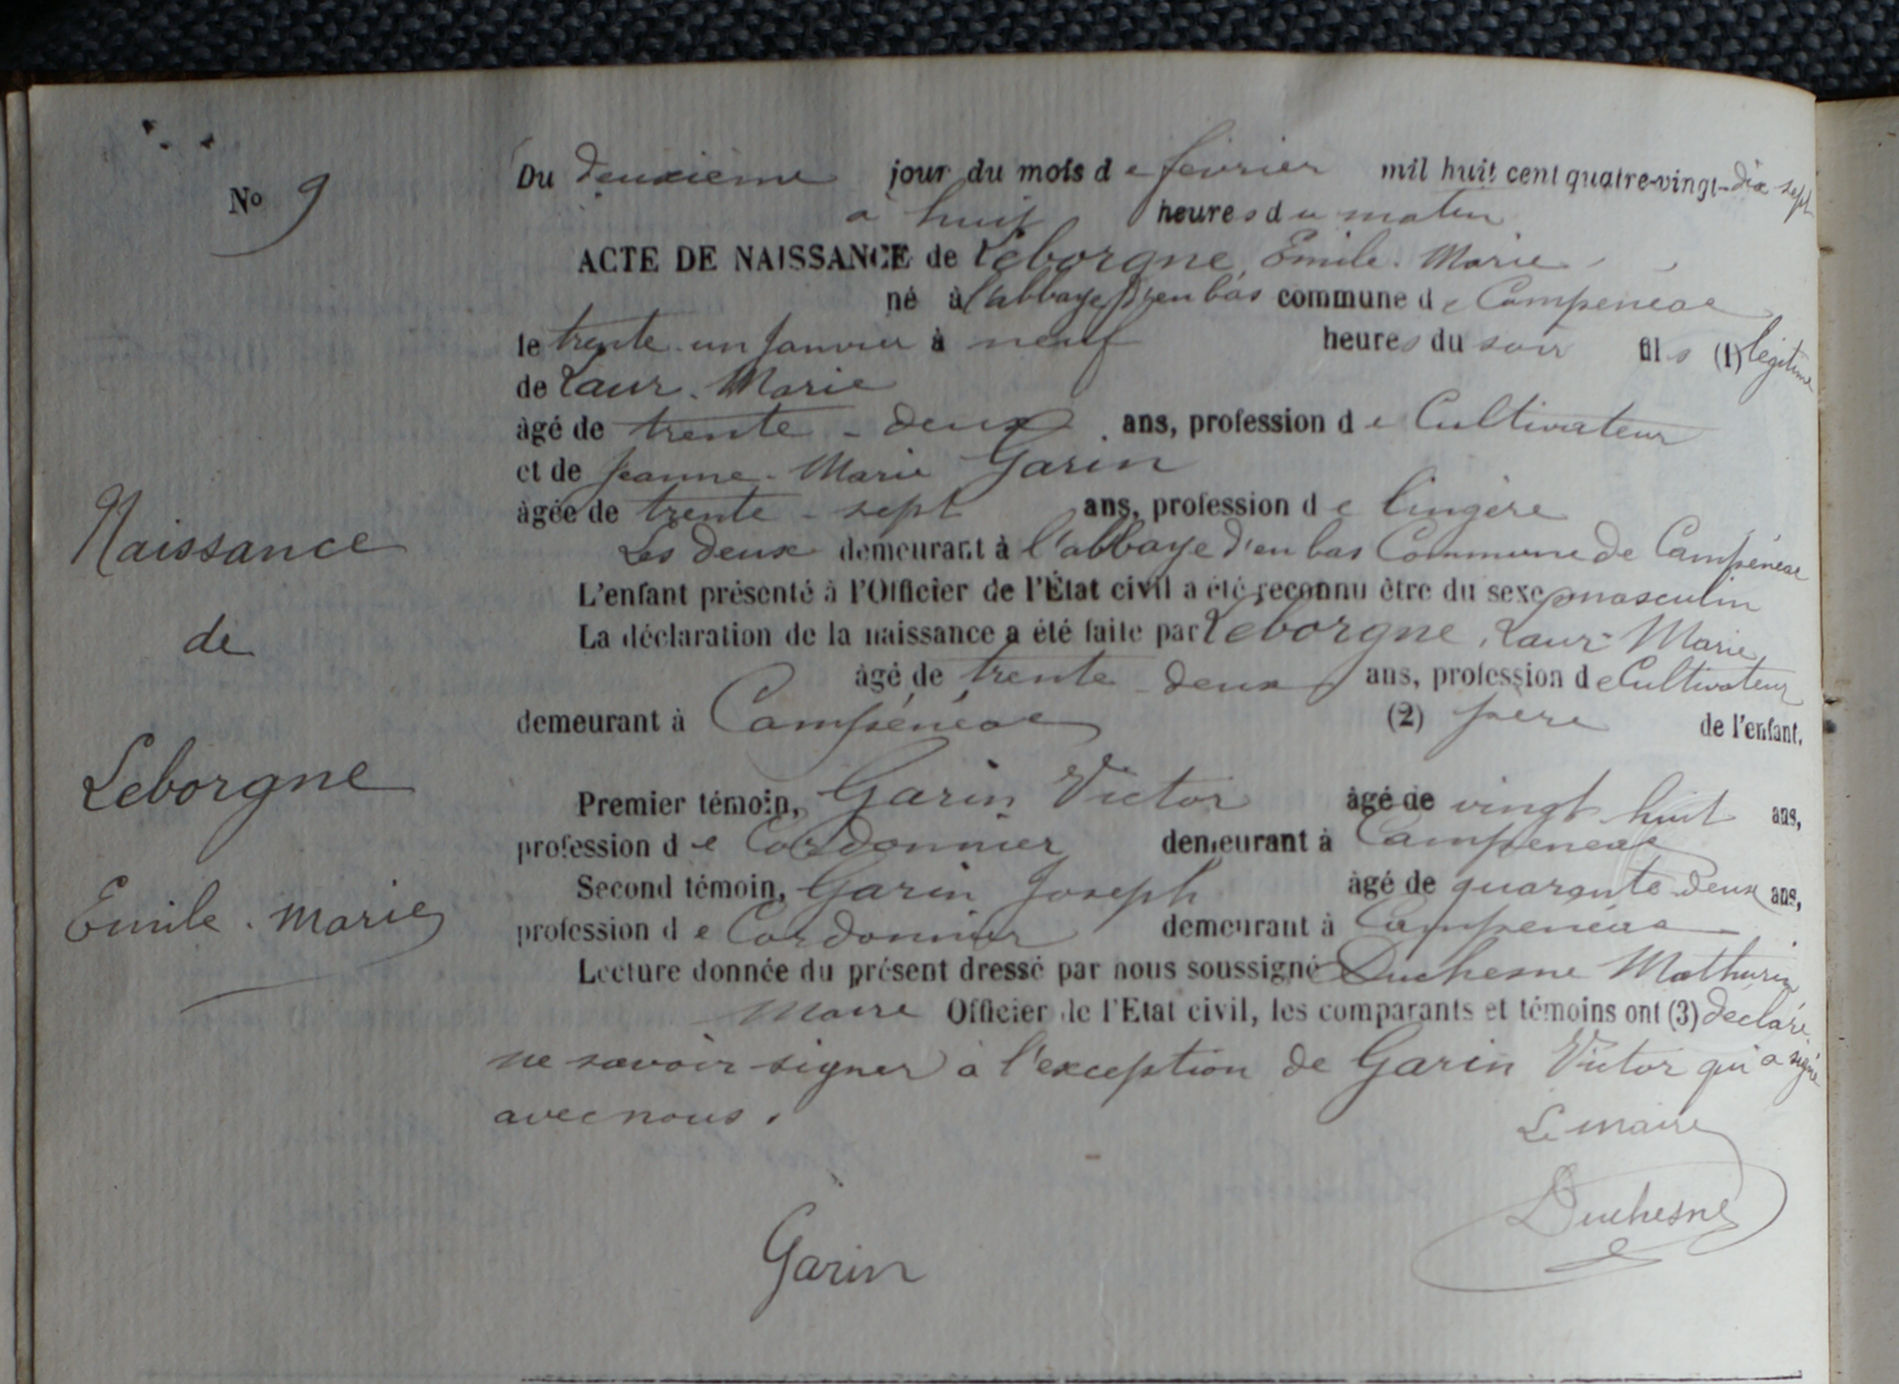 No 9
Du deuxième jour du mois de février mil huit cent quatre-vingt-dix sept
à huit heures du matin
ACTE DE NAISSANCE de Leborgne Emile. Marie
né à l'abbaye d'en bas commune de Campénéac
le trente-un janvier à neuf heures du soir fils (1) légitime
de Laur. Marie
âgé de trente-deux ans, profession de Cultivateur
et de Jeanne-Marie Garin
âgée de trente-sept ans, profession de lingère
Les deux demeurant à l'abbaye d'en bas Commune de Campénéac
L'enfant présenté à l'Officier de l'État civil a été reconnu être du sexe masculin
La déclaration de la naissance a été faite par Leborgne, Laur-Marie
âgé de trente-deux ans, profession de Cultivateur
demeurant à Campénéac (2) père de l'enfant.
Naissance
de
Leborgne
Emile. Marie
Premier témoin, Garin Victor âgé de vingt-huit ans,
profession de Cordonnier demeurant à Campénéac
Second témoin, Garin Joseph âgé de quarante-deux ans,
profession de Cordonnier demeurant à Campénéac
Lecture donnée du présent dressé par nous soussigné Duchesne Mathurin
Maire Officier de l'Etat civil, les comparants et témoins ont (3) déclaré
ne savoir signer à l'exception de Garin Victor qui a signé
avec nous.
Le maire
Duchesne
Garin